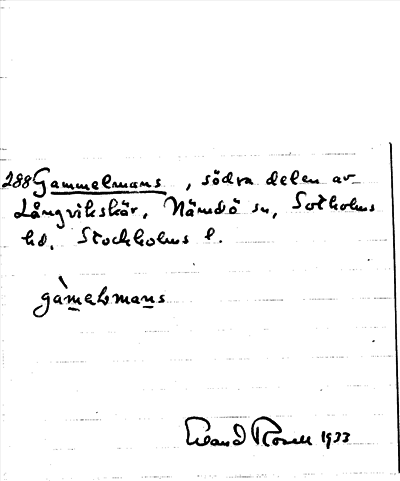 288 Gammelmans, södra delen av
Långvikskär, Nämdö sn, Sotholms
hd, Stockholms l.
gàmelsmans
Erland Rosell 1933